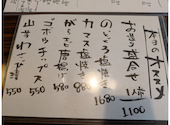 本日のオススメ
お造り盛合せ 1人前 1100
のどぐろ塩焼き 1680
カマス塩焼き 980
がらエビ唐揚げ 880
ゴボウチップス 550
山芋わさび漬 550